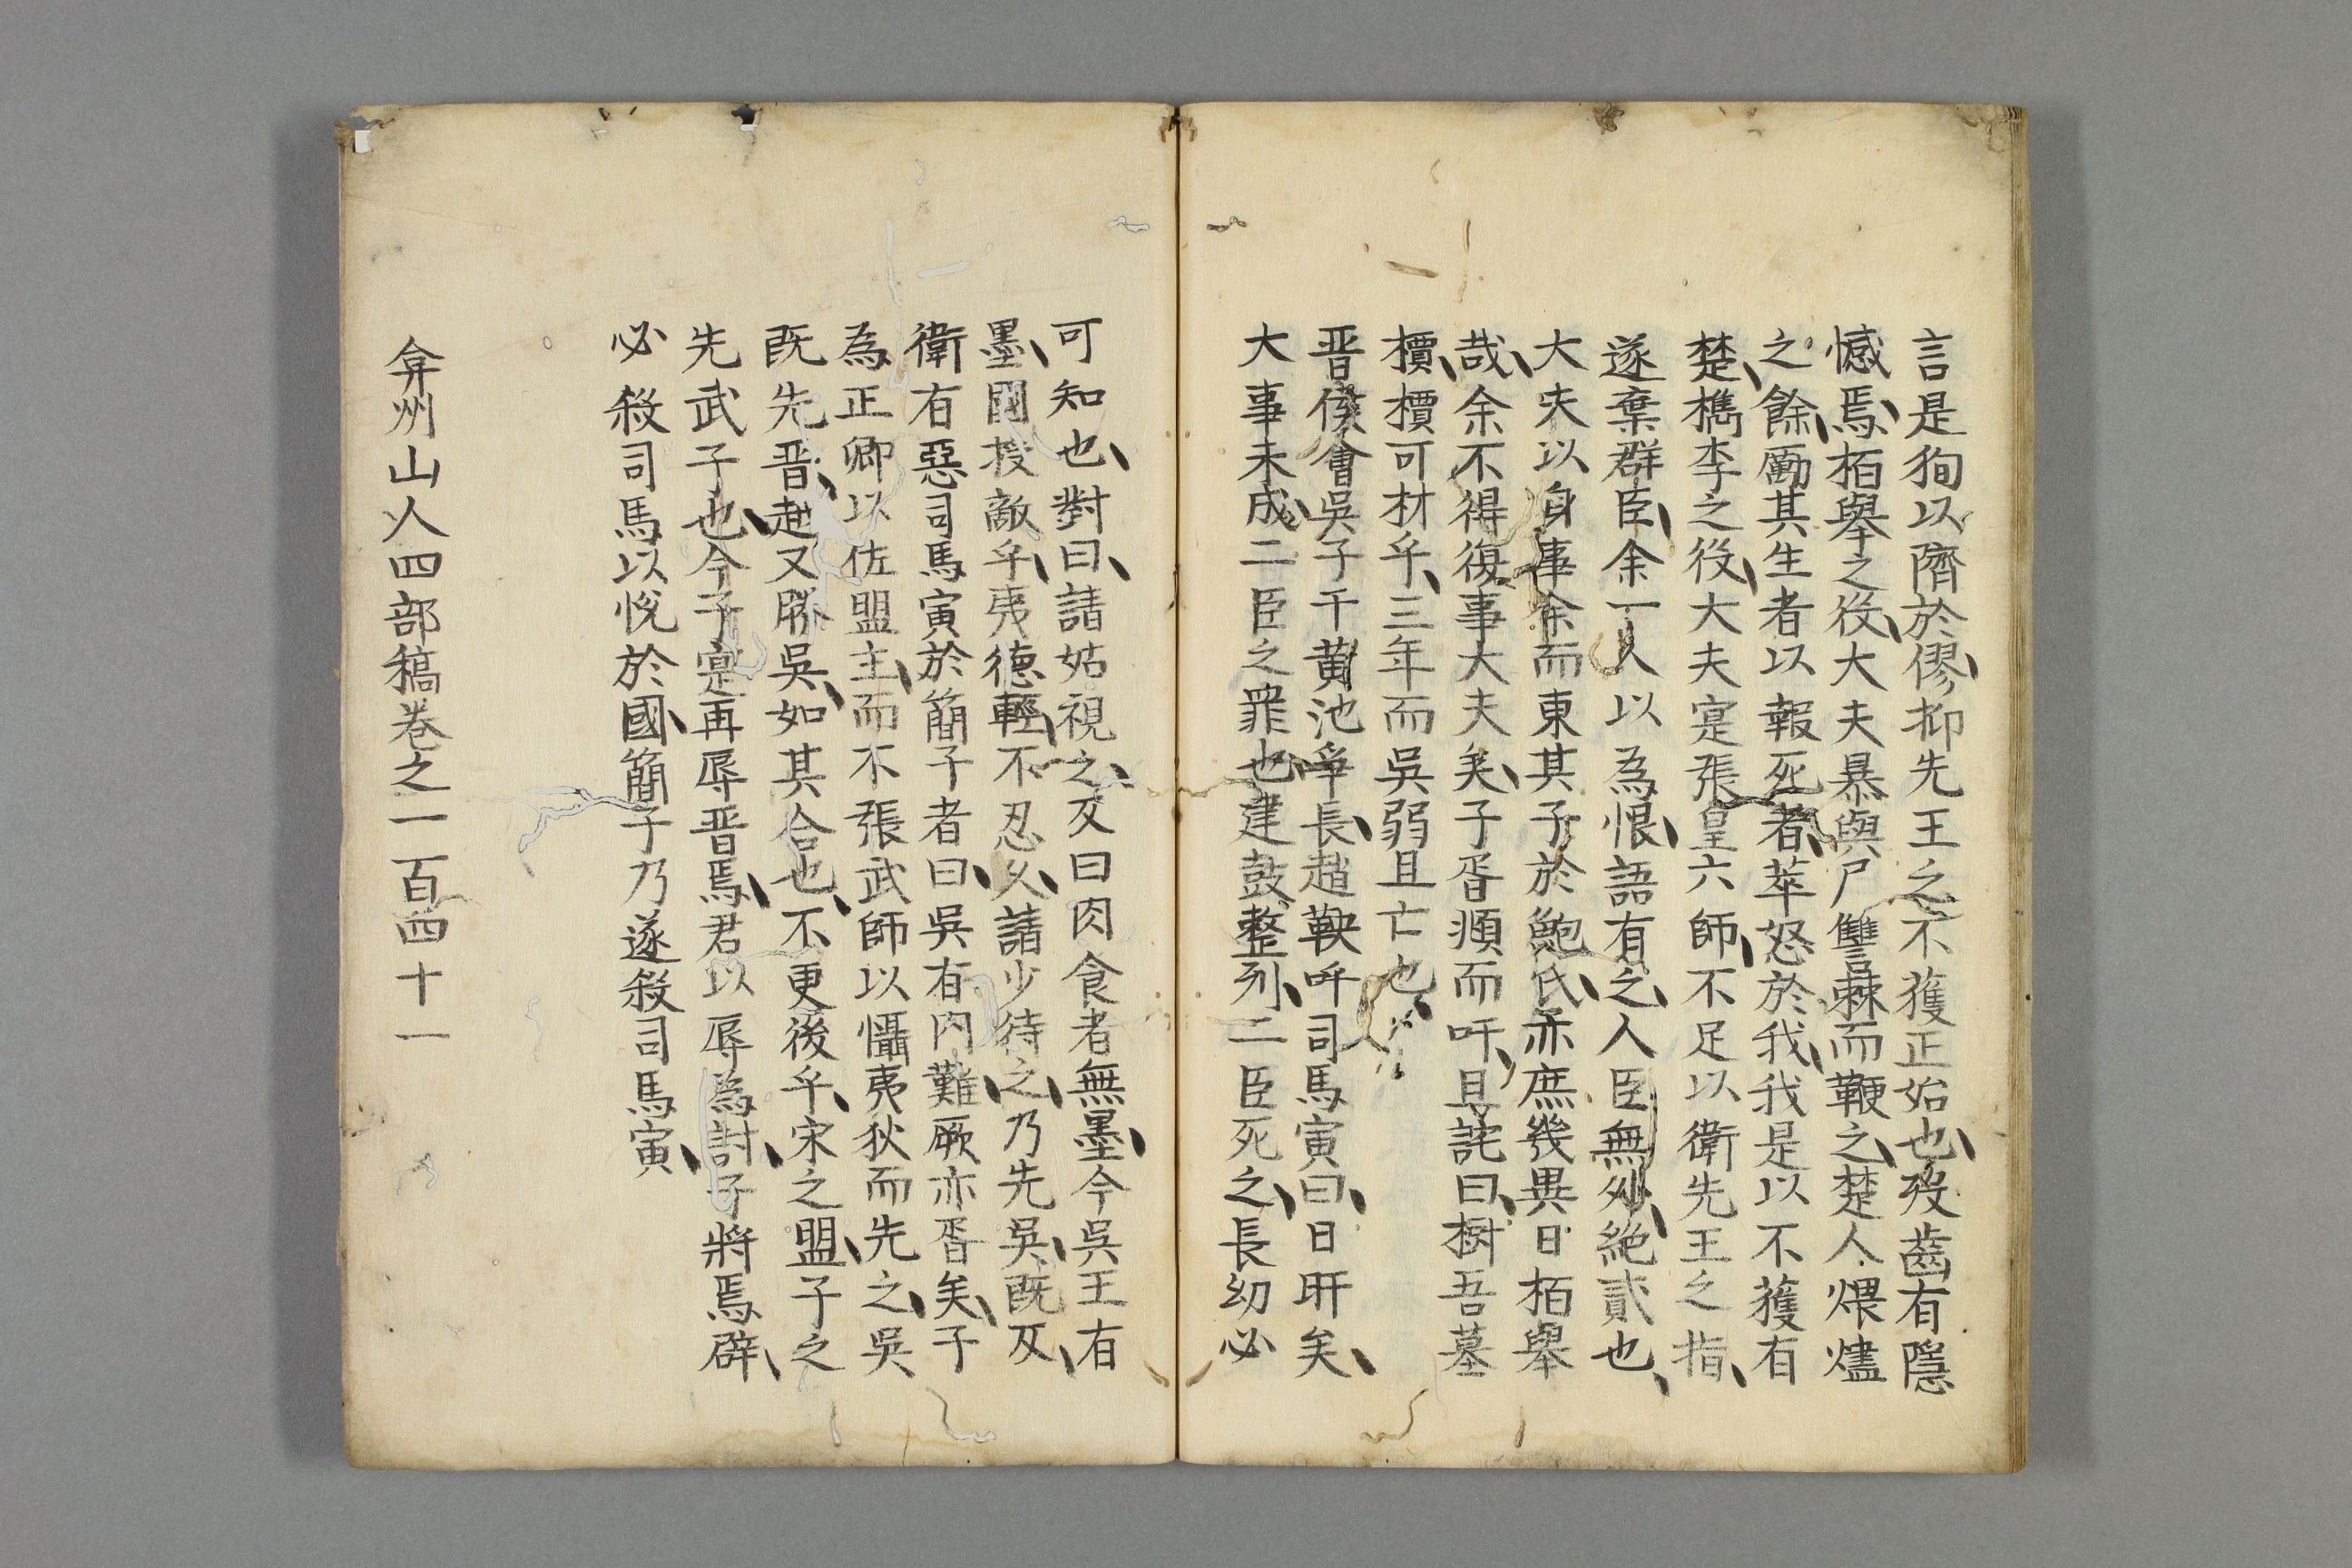 言是狥以隮於僇抑先王之不獲正始也歿齒有隱
憾焉栢舉之役大夫暴與尸讐棘而鞭之楚人煨燼
之餘勵其生者以報死者萃怒於我我是以不獲有
楚檇李之役大夫寔張皇六師不足以衛先王之指
遂棄群臣余一人以為恨語有之人臣無外絕貳也
大夫以身事余而東其子於鮑氏亦庶幾異日栢舉
哉余不得復事大夫矣子胥頫而吁且詫曰樹吾墓
檟檟可材乎三年而吳弱且亡也
晋侯會吳子于黄池爭長趙鞅呼司馬寅曰日旰矣
大事未成二臣之罪也建鼓整列二臣死之長幼必
可知也對曰請姑視之反曰肉食者無墨今吳王有
墨國投敵乎夷德輕不忍乆請少待之乃先吳既反
衛有惡司馬寅於簡子者曰吳有内難厥亦胥矣子
為正卿以佐盟主而不張武師以懾夷狄而先之吳
既先晋越又勝吳如其合也不更後乎宋之盟子之
先武子也今子寔再辱晋焉君以辱為討子將焉辟
必殺司馬以恱於國簡子乃遂殺司馬寅
弇州山人四部稿卷之一百四十一